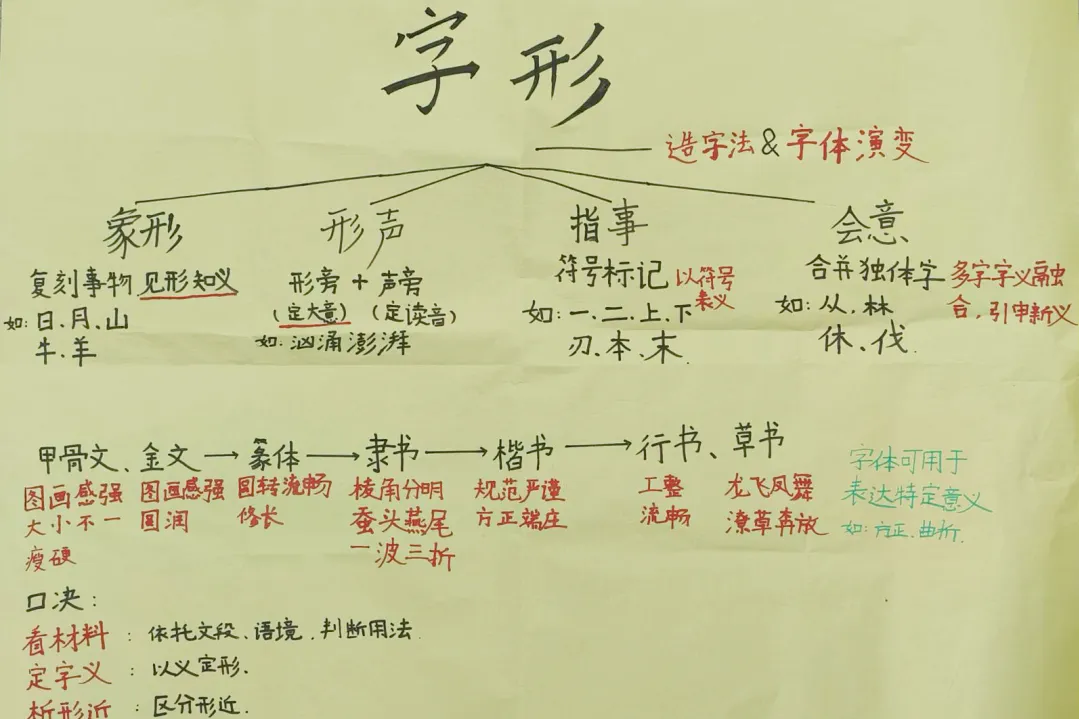 字形
造字法&字体演变
象形 形声 指事 会意
复刻事物 见形知义 形旁+声旁 符号标记 以符号表义 合并独体字 多字字义融合,引申新义
(定大意) (定读音)
如:日、月、山 如:汹涌澎湃 如:一、二、上、下 如:从、林
牛、羊 刃、本、末 休、伐
甲骨文、金文→篆体→隶书→楷书→行书、草书
图画感强 图画感强 圆转流畅 棱角分明 规范严谨 工整 龙飞凤舞
大小不一 圆润 修长 蚕头燕尾 方正端庄 流畅 潦草奔放
瘦硬 一波三折
字体可用于
表达特定意义
如:方正、曲折.
口决:
看材料:依托文段、语境,判断用法
定字义:以义定形.
析形近:区分形近.